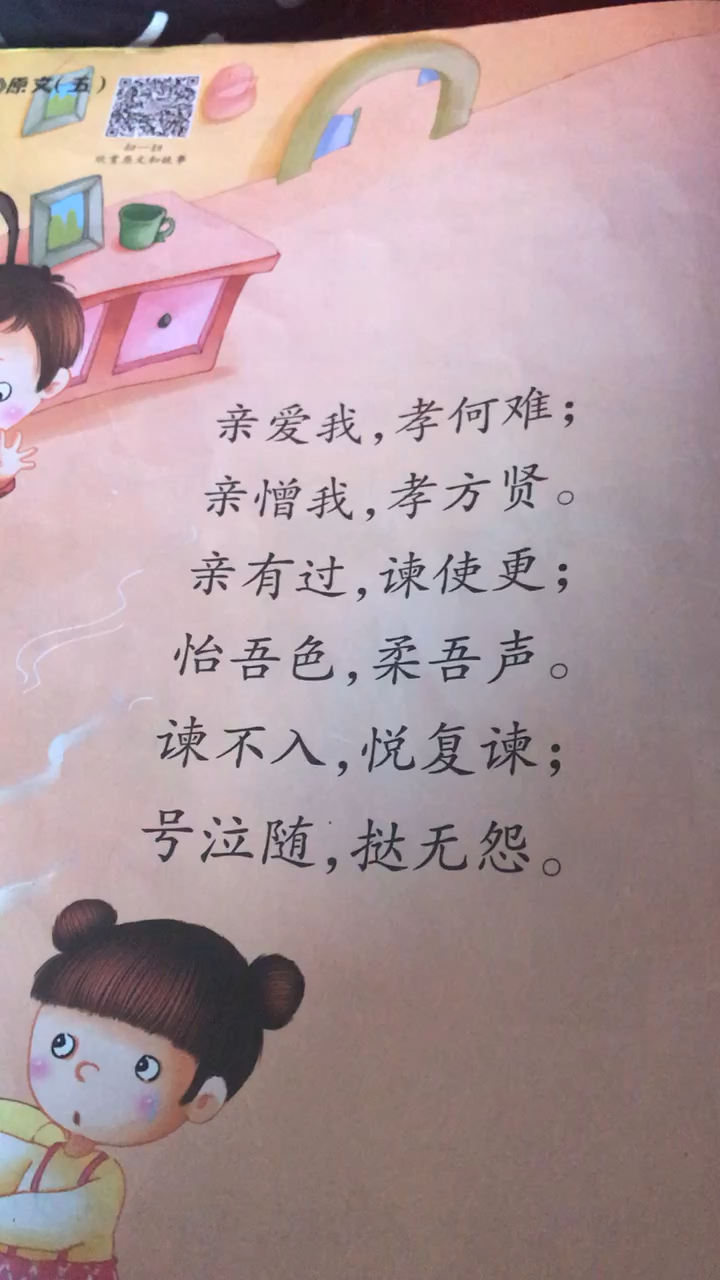 原文(五)
扫一扫
欣赏原文和故事
亲爱我,孝何难;
亲憎我,孝方贤。
亲有过,谏使更;
怡吾色,柔吾声。
谏不入,悦复谏;
号泣随,挞无怨。